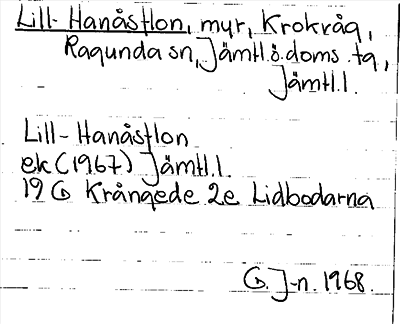 Lill-Hanåstlon, myr, Krokvåg,
Ragunda sn, Jämtl.ö.doms.tg,
Jämtl.l.
Lill-Hanåstlon
ek (1967) Jämtl.l.
19 G Krångede 2e Lidbodarna
G. J-n. 1968.